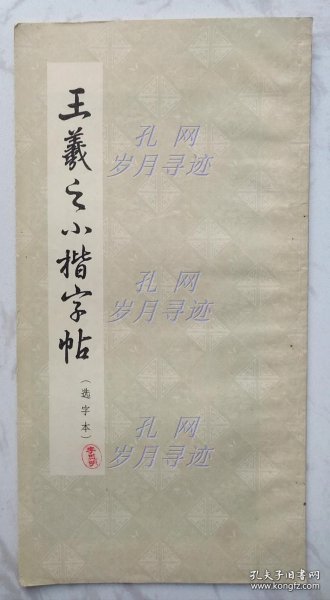 王羲之小楷字帖
（选字本）
孔网
岁月寻迹
孔网
岁月寻迹
孔网
岁月寻迹
孔夫子旧书网
www.kongfz.com